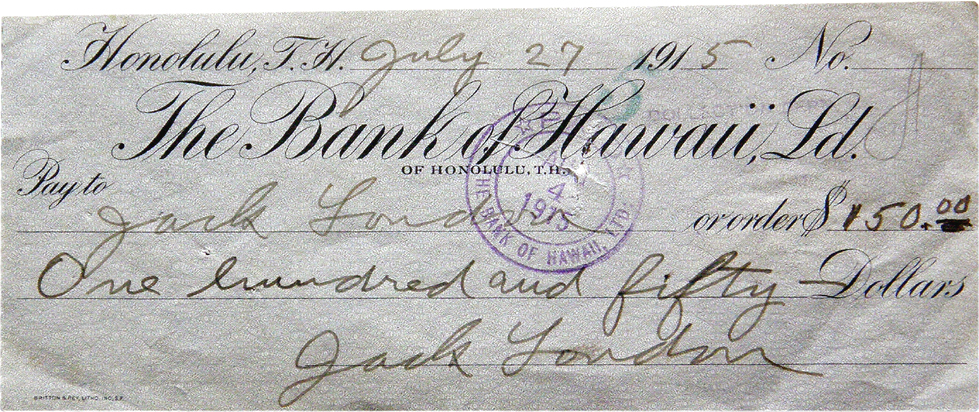 Honolulu, T.H. July 27 1915 No.
The Bank of Hawaii, Ld.
OF HONOLULU, T.H.
Pay to
Jack London or order $ 150.00
One hundred and fifty — Dollars
Jack London
THE BANK OF HAWAII, LTD.
4
1915
BRITTON & REY, LITHO, INC, S.F.